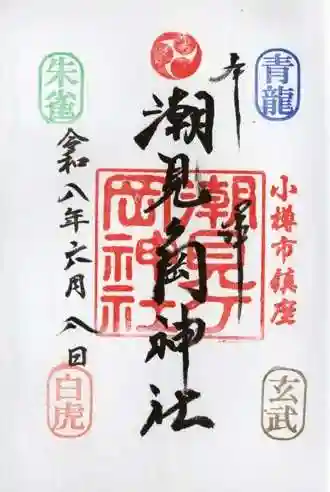 青龍
奉拝
小樽市鎮座
潮見ヶ岡神社
潮見ヶ岡神社
朱雀
令和八年六月八日
玄武
白虎